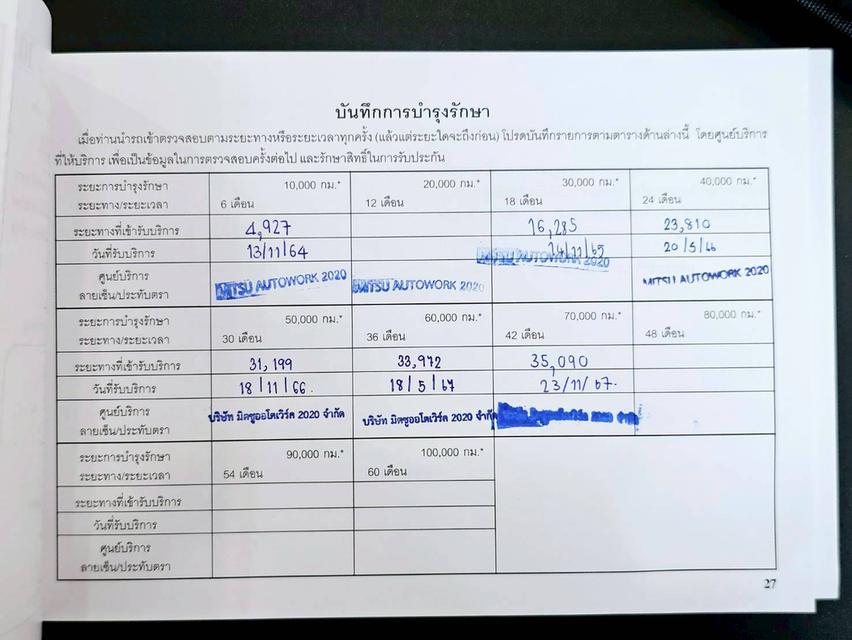 บันทึกการบำรุงรักษา
เมื่อท่านนำรถเข้าตรวจสอบตามระยะทางหรือระยะเวลาทุกครั้ง (แล้วแต่ระยะใดจะถึงก่อน) โปรดบันทึกรายการตามตารางด้านล่างนี้ โดยศูนย์บริการ
ที่ให้บริการ เพื่อเป็นข้อมูลในการตรวจสอบครั้งต่อไป และรักษาสิทธิ์ในการรับประกัน
ระยะการบำรุงรักษา 10,000 กม.* 20,000 กม.* 30,000 กม.* 40,000 กม.*
ระยะทาง/ระยะเวลา 6 เดือน 12 เดือน 18 เดือน 24 เดือน
ระยะทางที่เข้ารับบริการ 4,927 16,285 23,810
วันที่รับบริการ 13/11/64 14/11/65 20/5/66
ศูนย์บริการ MITSU AUTOWORK 2020 MITSU AUTOWORK 2020 AUTOWORK 2020 MITSU AUTOWORK 2020
ลายเซ็น/ประทับตรา
ระยะการบำรุงรักษา 50,000 กม.* 60,000 กม.* 70,000 กม.* 80,000 กม.*
ระยะทาง/ระยะเวลา 30 เดือน 36 เดือน 42 เดือน 48 เดือน
ระยะทางที่เข้ารับบริการ 31,199 33,972 35,090
วันที่รับบริการ 18/11/66. 18/5/67 23/11/67.
ศูนย์บริการ บริษัท มิตซูออโตเวิร์ค 2020 จำกัด บริษัท มิตซูออโตเวิร์ค 2020 จำกัด
ลายเซ็น/ประทับตรา
ระยะการบำรุงรักษา 90,000 กม.* 100,000 กม.*
ระยะทาง/ระยะเวลา 54 เดือน 60 เดือน
ระยะทางที่เข้ารับบริการ
วันที่รับบริการ
ศูนย์บริการ
ลายเซ็น/ประทับตรา
27